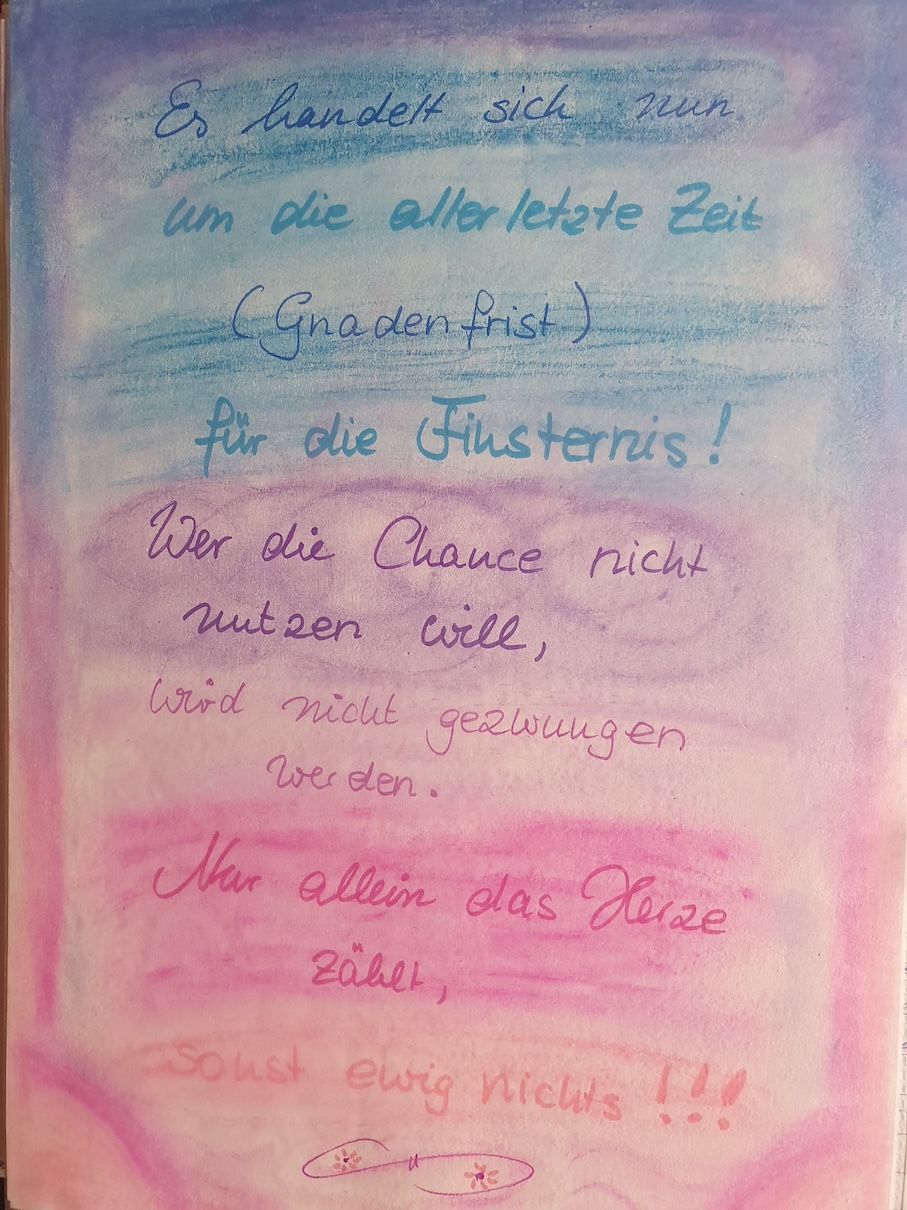 Es handelt sich nun
um die allerletzte Zeit
(Gnadenfrist)
für die Finsternis!
Wer die Chance nicht
nutzen will,
wird nicht gezwungen
werden.
Nur allein das Herze
zählt,
sonst ewig nichts!!!